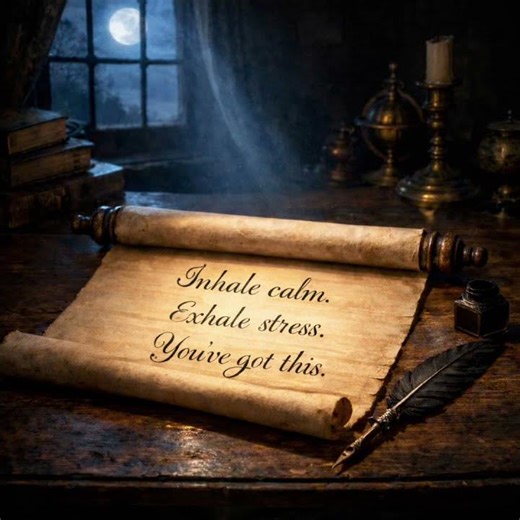 Inhale calm.
Exhale stress.
You've got this.